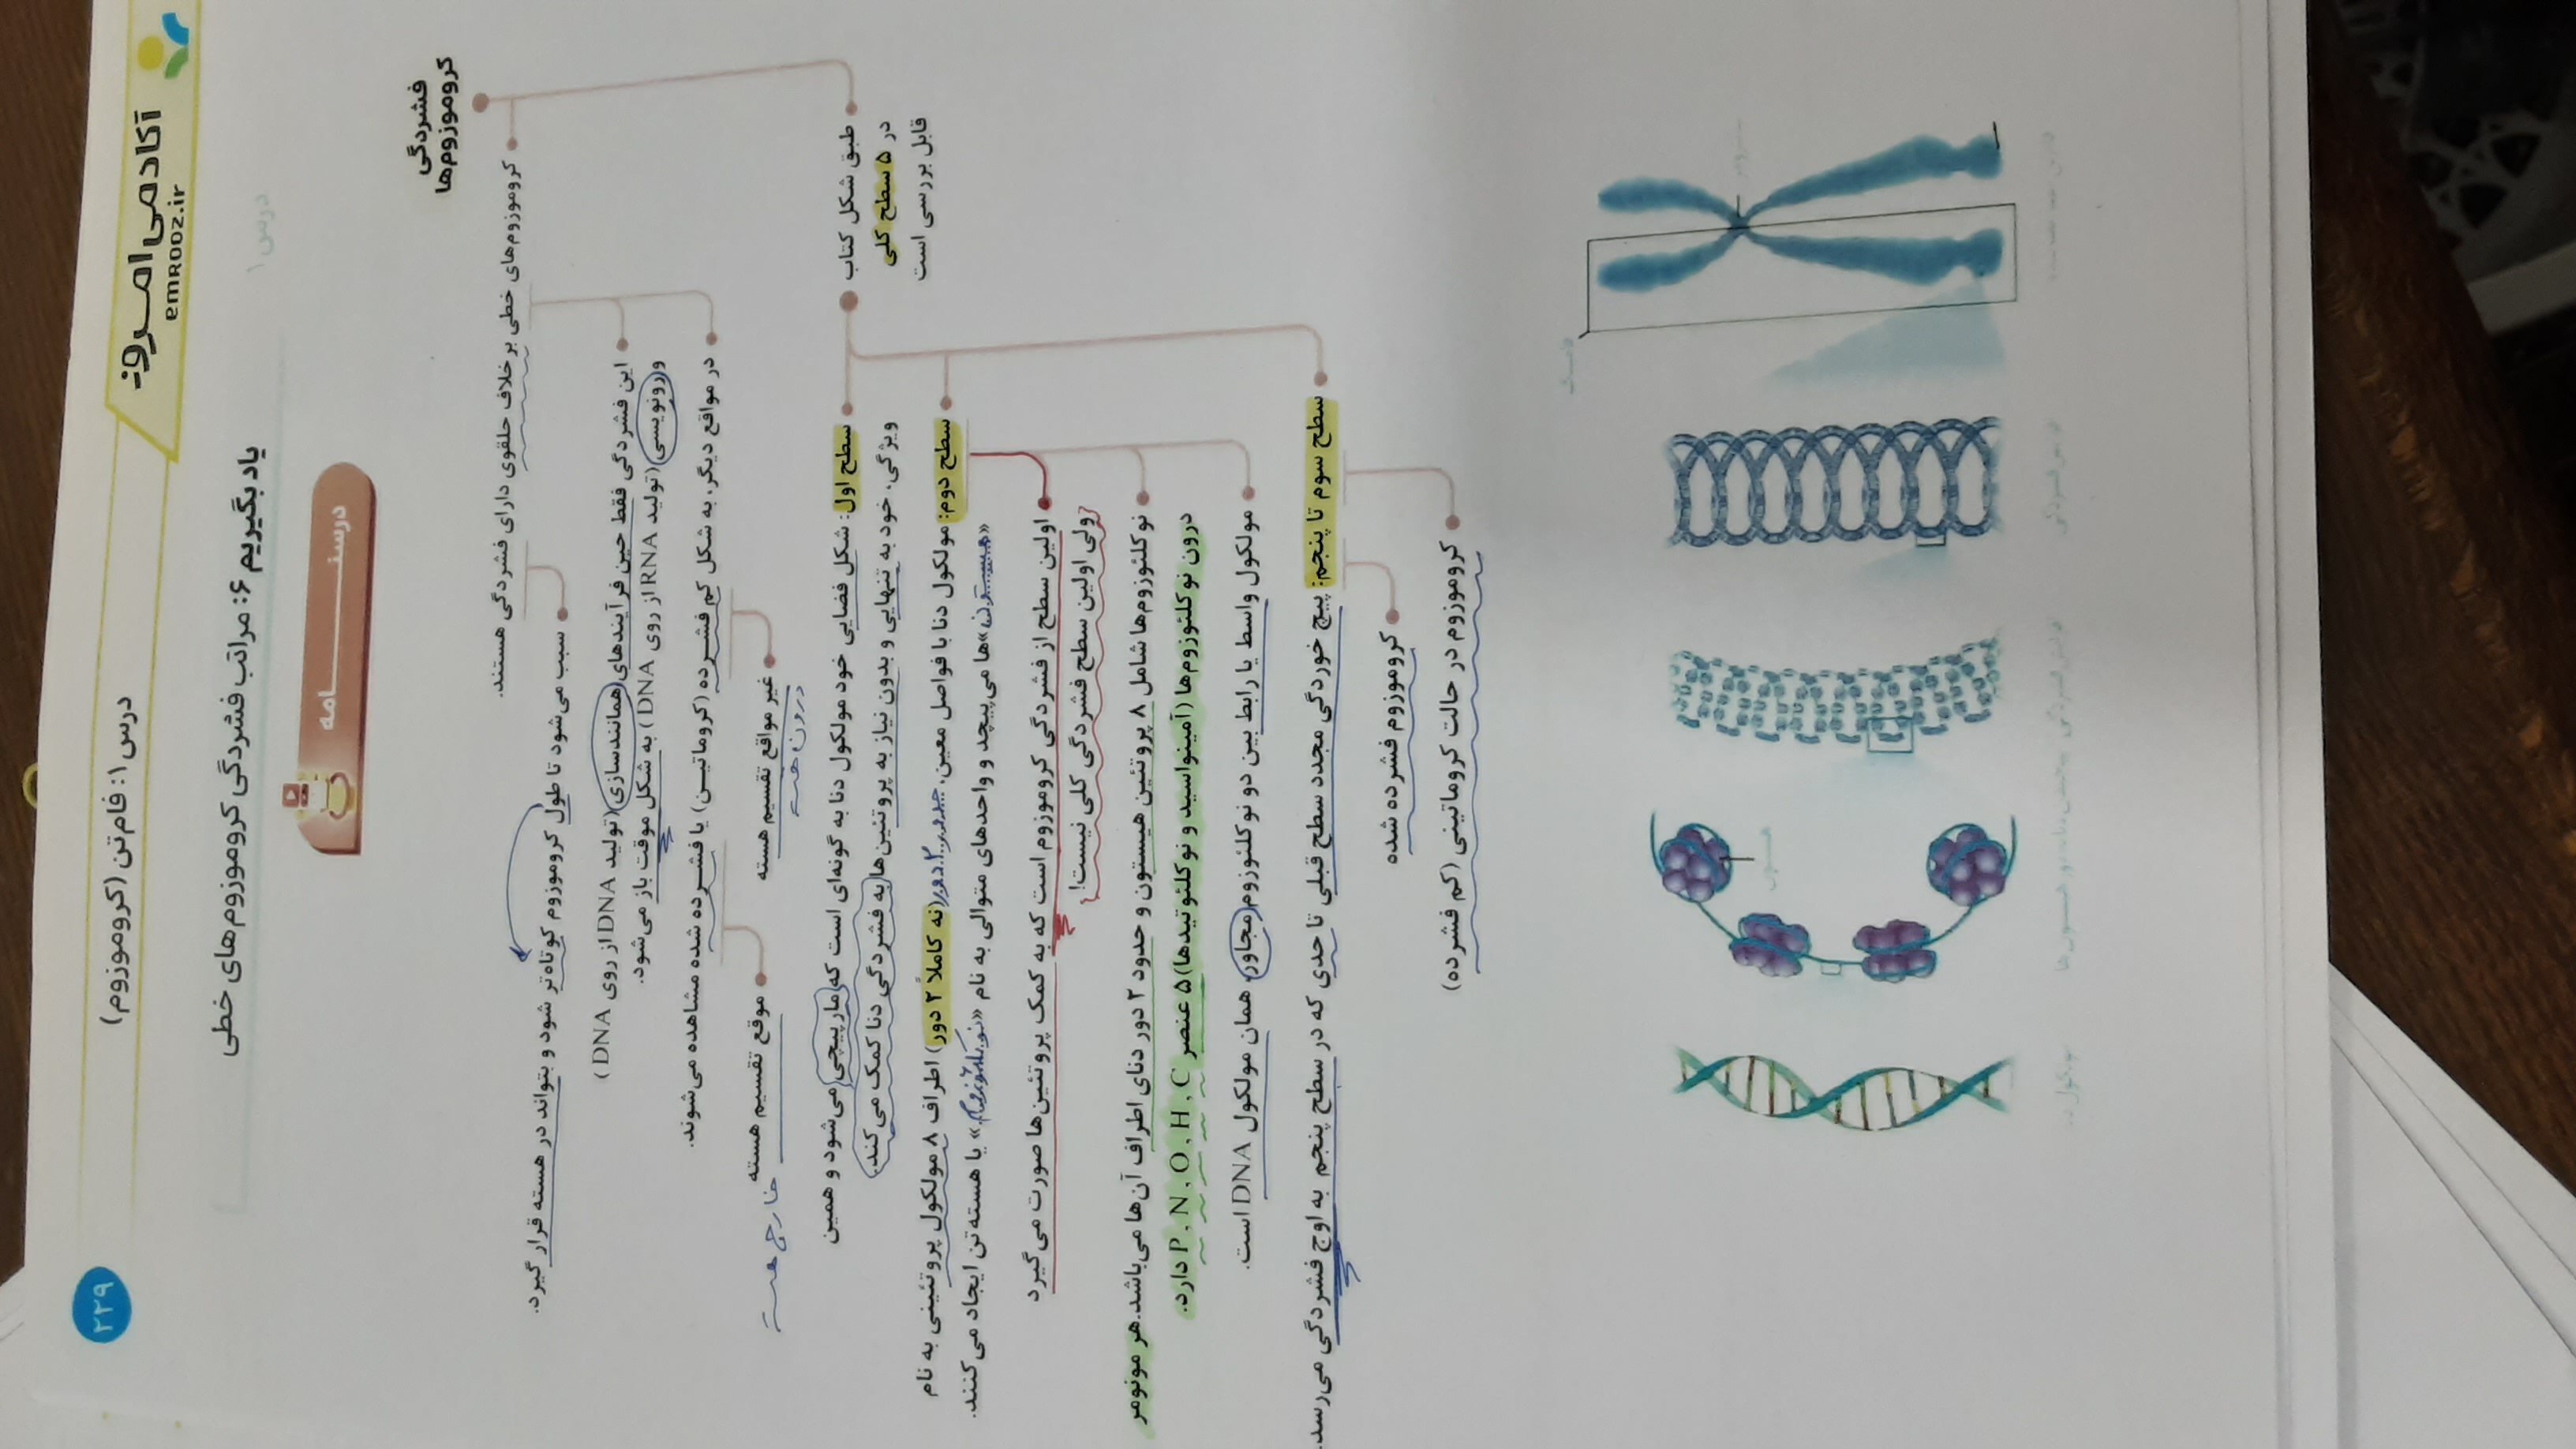 آکادمی امروز
emrooz.ir
درس ۱: فام‌تن (کروموزوم)
۲۲۹
یاد بگیریم ۶: مراتب فشردگی کروموزوم‌های خطی
درسنامه
فشردگی
کروموزوم‌ها
کروموزوم‌های خطی برخلاف حلقوی دارای فشردگی هستند.
سبب می‌شود تا طول کروموزوم کوتاه‌تر شود و بتواند در هسته قرار گیرد.
این فشردگی فقط حین فرآیندهای همانندسازی (تولید DNA از روی DNA)
و رونویسی (تولید RNA از روی DNA) به شکل موقت باز می‌شود.
در مواقع دیگر، به شکل کم فشرده (کروماتین) یا فشرده شده مشاهده می‌شوند.
غیر مواقع تقسیم هسته
درون هسته
موقع تقسیم هسته
خارج هسته
طبق شکل کتاب
در ۵ سطح کلی
قابل بررسی است
سطح اول: شکل فضایی خود مولکول دنا به گونه‌ای است که مارپیچی می‌شود و همین
ویژگی، خود به تنهایی و بدون نیاز به پروتئین‌ها به فشردگی دنا کمک می‌کند.
سطح دوم: مولکول دنا با فواصل معین، حدود ۲ دور (نه کاملاً ۲ دور) اطراف ۸ مولکول پروتئینی به نام
«هیستون»ها می‌پیچد و واحدهای متوالی به نام «نوکلئوزوم» یا هسته تن ایجاد می‌کنند.
اولین سطح از فشردگی کروموزوم است که به کمک پروتئین‌ها صورت می‌گیرد
ولی اولین سطح فشردگی کلی نیست!
نوکلئوزوم‌ها شامل ۸ پروتئین هیستون و حدود ۲ دور دنای اطراف آن‌ها می‌باشد. هر مونومر
درون نوکلئوزوم‌ها (آمینواسید و نوکلئوتیدها) ۵ عنصر P . N . O . H . C دارد.
مولکول واسط یا رابط بین دو نوکلئوزوم مجاور، همان مولکول DNA است.
سطح سوم تا پنجم: پیچ خوردگی مجدد سطح قبلی تا حدی که در سطح پنجم به اوج فشردگی می‌رسد.
کروموزوم فشرده شده
کروموزوم در حالت کروماتینی (کم فشرده)